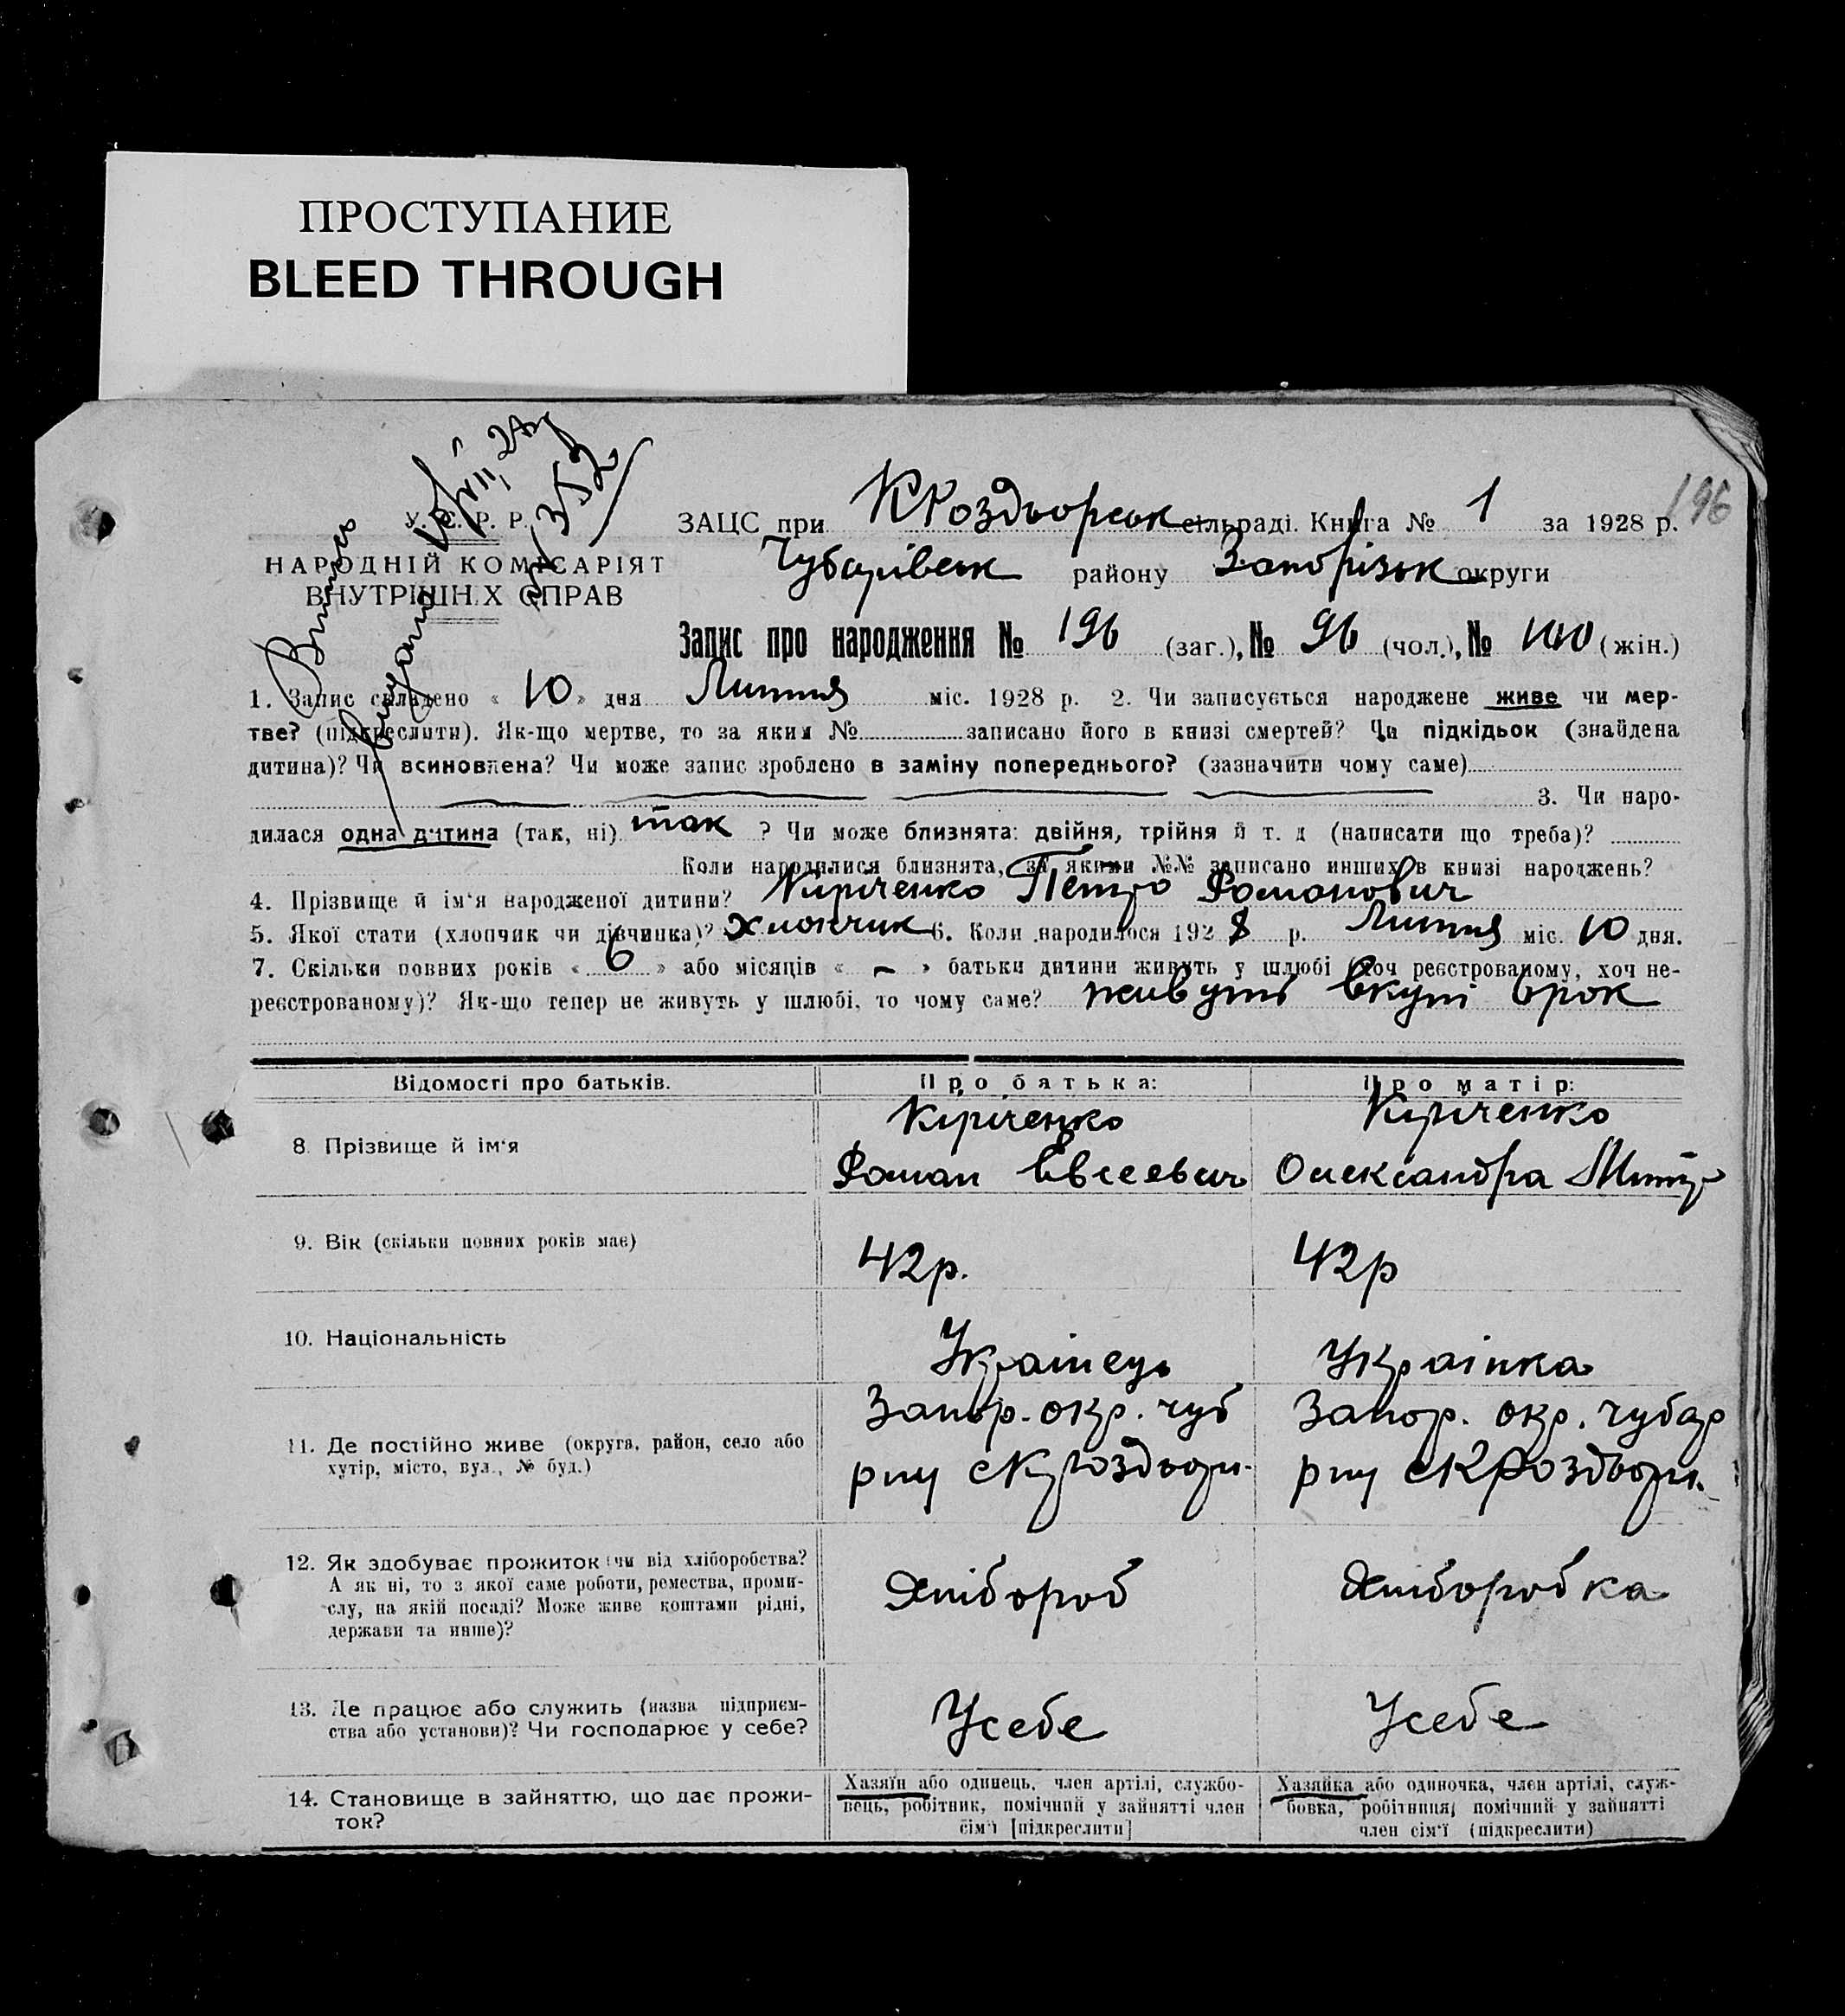 ПРОСТУПАНИЕ
BLEED THROUGH
196
У. С. Р. Р.
НАРОДНІЙ КОМІСАРІЯТ
ВНУТРІШН.Х СПРАВ
352
ЗАЦС при КРоздорськ сільраді. Книга № 1 за 1928 р.
Чубарівськ району Запорізьк округи
Запис про народження № 196 (заг.), № 96 (чол.), № 100 (жін.)
1. Запис складено « 10 » дня Липня міс. 1928 р. 2. Чи записується народжене живе чи мер-
тве? (підкреслити). Як-що мертве, то за яким № записано його в книзі смертей? Чи підкідьок (знайдена
дитина)? Чи всиновлена? Чи може запис зроблено в заміну попереднього? (зазначити чому саме)
3. Чи наро-
дилася одна дитина (так, ні) так ? Чи може близнята: двійня, трійня й т. д (написати що треба)?
Коли народилися близнята, за якими №№ записано инших в книзі народжень?
4. Прізвище й ім'я народженої дитини? Кіріченко Петро Романович
5. Якої стати (хлопчик чи дівчинка)? хлопчик 6. Коли народилося 1928 р. Липня міс. 10 дня.
7. Скільки повних років « 6 » або місяців « – » батьки дитини живуть у шлюбі (хоч реєстрованому, хоч не-
реєстрованому)? Як-що тепер не живуть у шлюбі, то чому саме? живуть вкупі
Відомості про батьків. Про батька: Про матір:
8. Прізвище й ім'я
Кіріченко
Роман Евсеевич
Кіріченко
Олександра Митр
9. Вік (скільки повних років має) 42р. 42р
10. Національність Українець Українка
11. Де постійно живе (округа, район, село або
хутір, місто, вул., № буд.)
Запор. окр. чуб
рну сКРоздори.
Запор. окр. чубар
рну сКРоздори.
12. Як здобуває прожиток (чи від хліборобства?
А як ні, то з якої саме роботи, ремества, проми-
слу, на якій посаді? Може живе коштами рідні,
держави та инше)?
Хлібороб Хліборобка
13. Де працює або служить (назва підприєм-
ства або установи)? Чи господарює у себе?
Усебе Усебе
14. Становище в зайняттю, що дає прожи-
ток?
Хазяїн або одинець, член артілі, службо-
вець, робітник, помічний у зайнятті член
сім'ї [підкреслити]
Хазяйка або одиночка, член артілі, служ-
бовка, робітниця, помічний у зайнятті
член сім'ї (підкреслити)